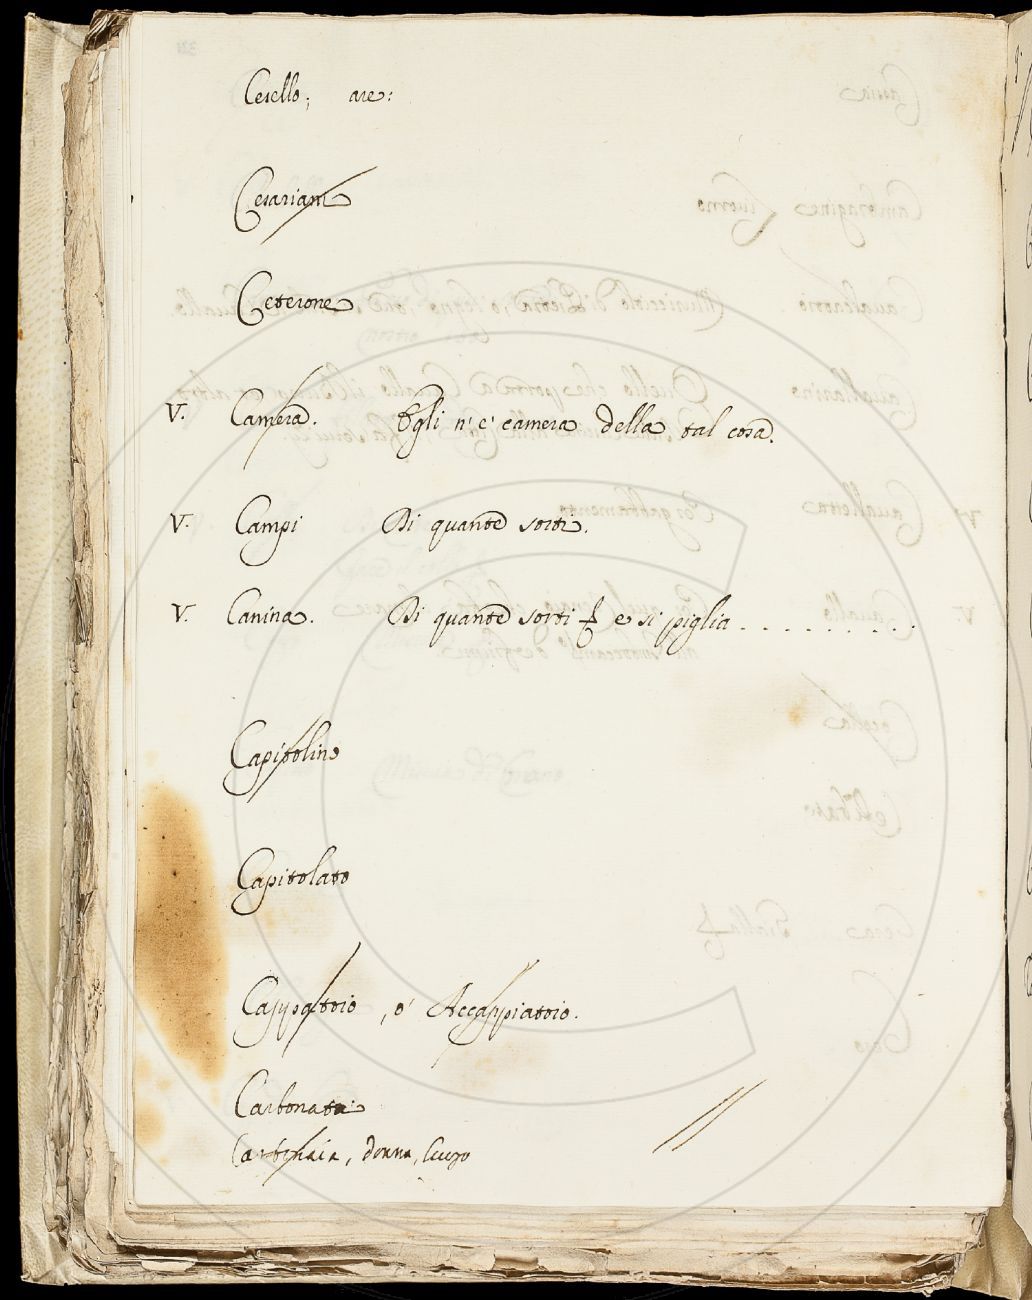 Cesello; are:
Cesariane
Ceterone
V. Camera. Egli n'e' camera della tal cosa.
V. Campi Di quante sorti.
V. Canina. Di quante sorti e si piglia . . . . . . . . . .
Capitolino
Capitolato
Cappatoio, o' Accappiatoio.
Carbonata
Carbonaia, donna, luogo